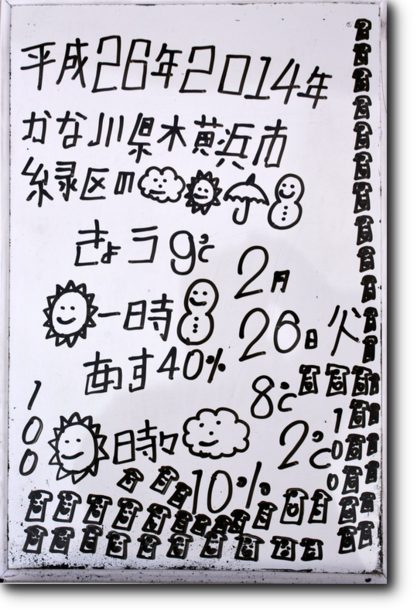 平成26年2014年
かな川県木黄浜市
緑区の
きょう9℃
2月
一日時
26日火
あす40%
8℃
100
日時々
2℃
100
10%